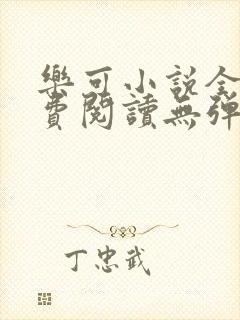 樂可小說全
費閱讀無彈
丁忠武